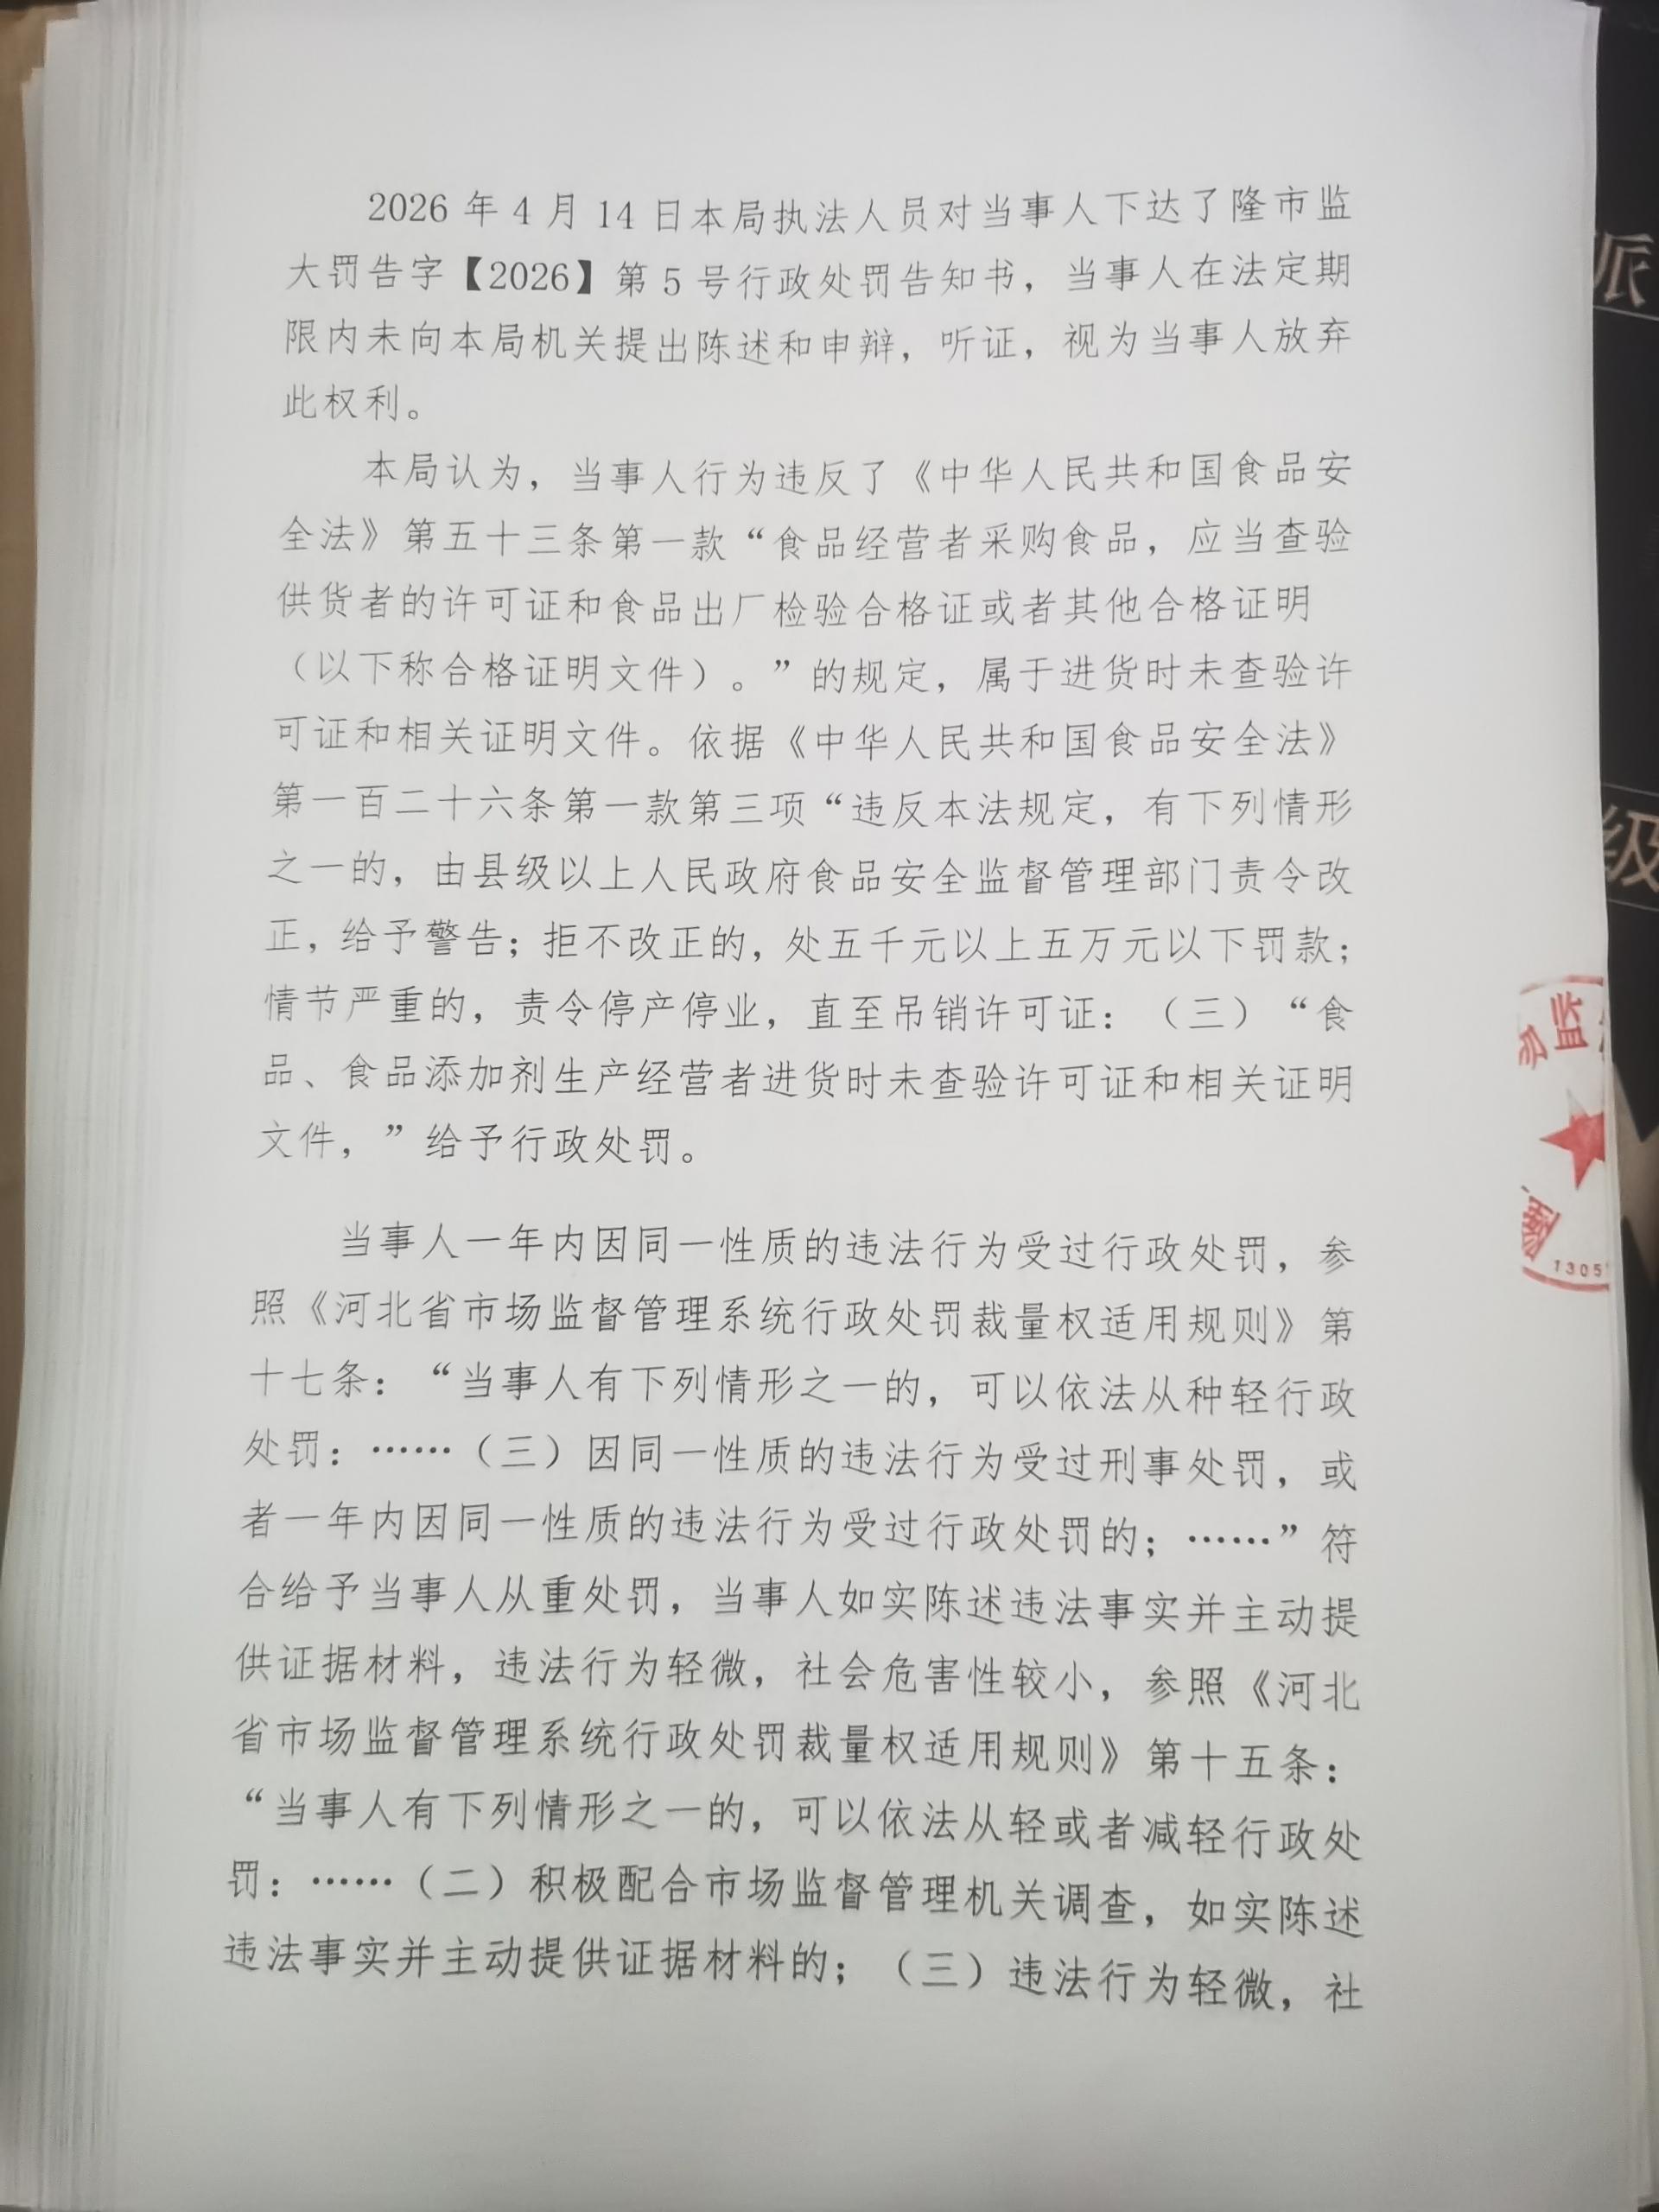 2026年4月14日本局执法人员对当事人下达了隆市监
大罚告字【2026】第5号行政处罚告知书，当事人在法定期
限内未向本局机关提出陈述和申辩，听证，视为当事人放弃
此权利。
本局认为，当事人行为违反了《中华人民共和国食品安
全法》第五十三条第一款“食品经营者采购食品，应当查验
供货者的许可证和食品出厂检验合格证或者其他合格证明
（以下称合格证明文件）。”的规定，属于进货时未查验许
可证和相关证明文件。依据《中华人民共和国食品安全法》
第一百二十六条第一款第三项“违反本法规定，有下列情形
之一的，由县级以上人民政府食品安全监督管理部门责令改
正，给予警告；拒不改正的，处五千元以上五万元以下罚款；
情节严重的，责令停产停业，直至吊销许可证：（三）“食
品、食品添加剂生产经营者进货时未查验许可证和相关证明
文件，”给予行政处罚。
当事人一年内因同一性质的违法行为受过行政处罚，参
照《河北省市场监督管理系统行政处罚裁量权适用规则》第
十七条：“当事人有下列情形之一的，可以依法从种轻行政
处罚：……（三）因同一性质的违法行为受过刑事处罚，或
者一年内因同一性质的违法行为受过行政处罚的；……”符
合给予当事人从重处罚，当事人如实陈述违法事实并主动提
供证据材料，违法行为轻微，社会危害性较小，参照《河北
省市场监督管理系统行政处罚裁量权适用规则》第十五条：
“当事人有下列情形之一的，可以依法从轻或者减轻行政处
罚：……（二）积极配合市场监督管理机关调查，如实陈述
违法事实并主动提供证据材料的；（三）违法行为轻微，社
派
级
监
1305